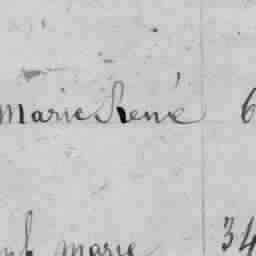 Marie René 6
marie 34